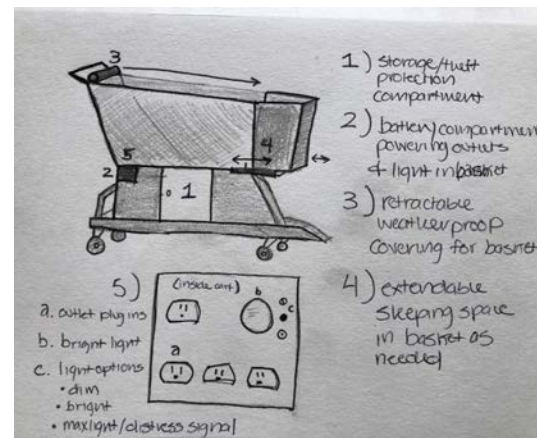 3
4
5
2
1
1) storage/theft
protection
compartment
2) battery compartment
powering outlets
& light in basket
3) retractable
weatherproof
covering for basket
4) extendable
sleeping space
in basket as
needed
5)
(inside cart)
b
c
a
a. outlet plug ins
b. bright light
c. light options
• dim
• bright
• max light/distress signal